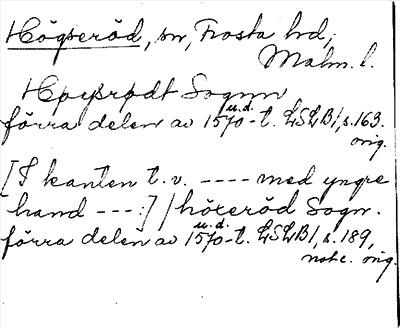 Högseröd, sn, Frosta hd,
Malm. l.
Høysrødt Sognn
förra delen av 1570-t. LSLB1, s. 163.
u.d.
orig.
[I kanten t.v. ---- med yngre
hand ---:] / höxeröd Sogn.
förra delen av 1570-t. LSLB1, s. 189,
u.d.
not c. orig.